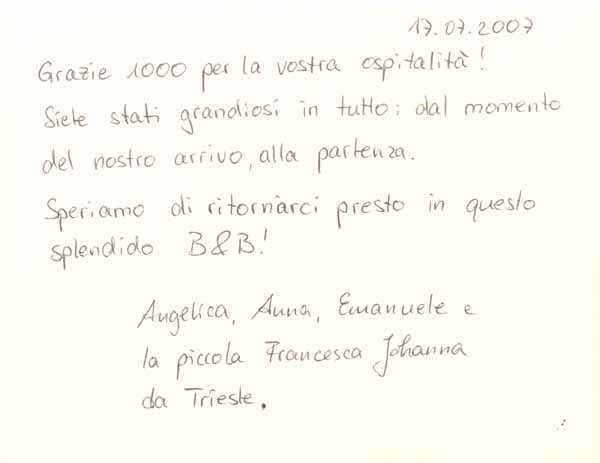 17.07.2007
Grazie 1000 per la vostra ospitalità!
Siete stati grandiosi in tutto: dal momento
del nostro arrivo, alla partenza.
Speriamo di ritornarci presto in questo
splendido B&B!
Angelica, Anna, Emanuele e
la piccola Francesca Johanna
da Trieste.